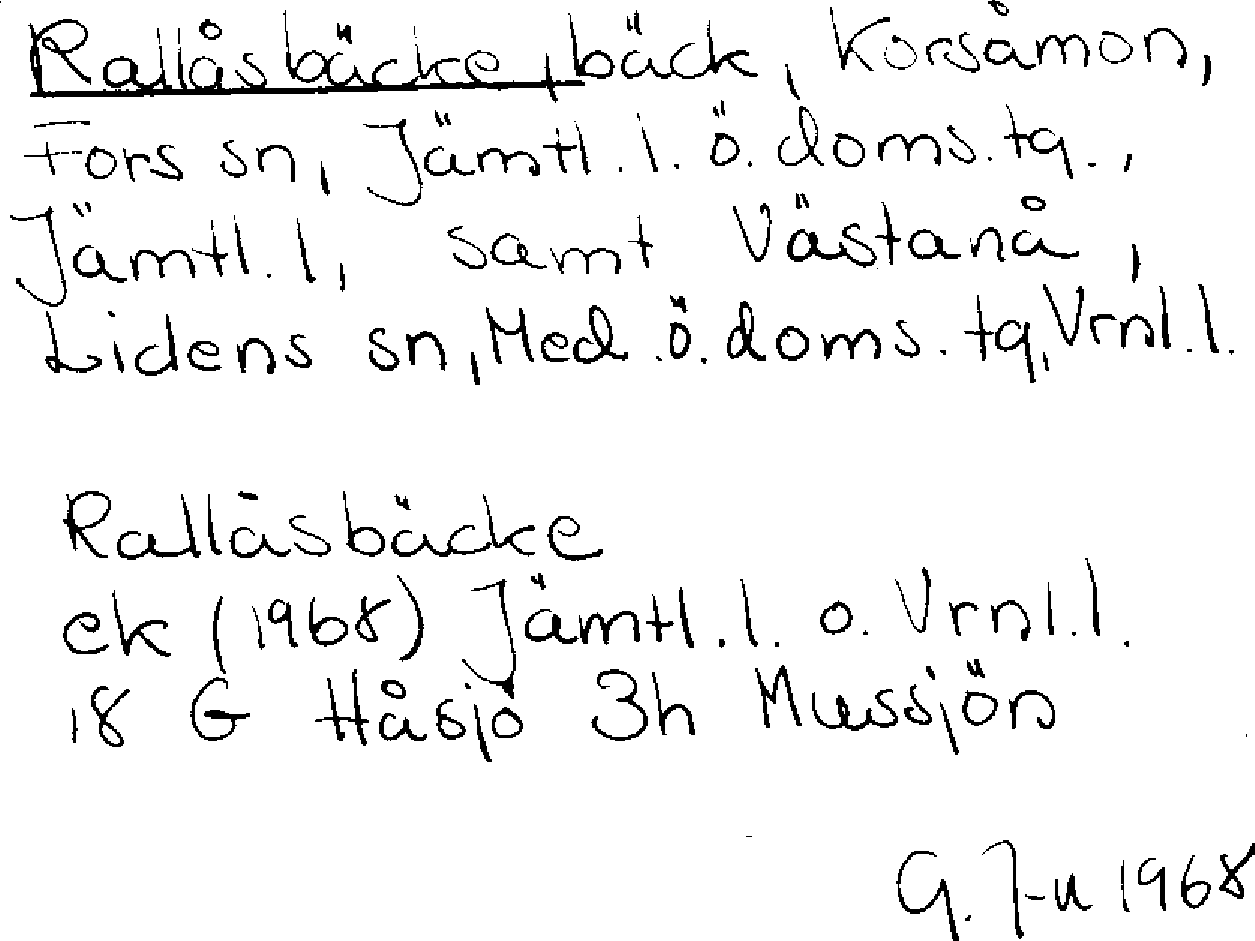 Rallåsbäcke, bäck, Korsåmon,
Fors sn, Jämtl.l. ö. doms.tg.,
Jämtl.l, samt Västanå,
Lidens sn, Med.ö.doms.tg, Vrnl.l.
Rallåsbäcke
ek (1968) Jämtl.l. o. Vrnl.l.
18 G Håsjö 3h Mussjön
G. J-n 1968